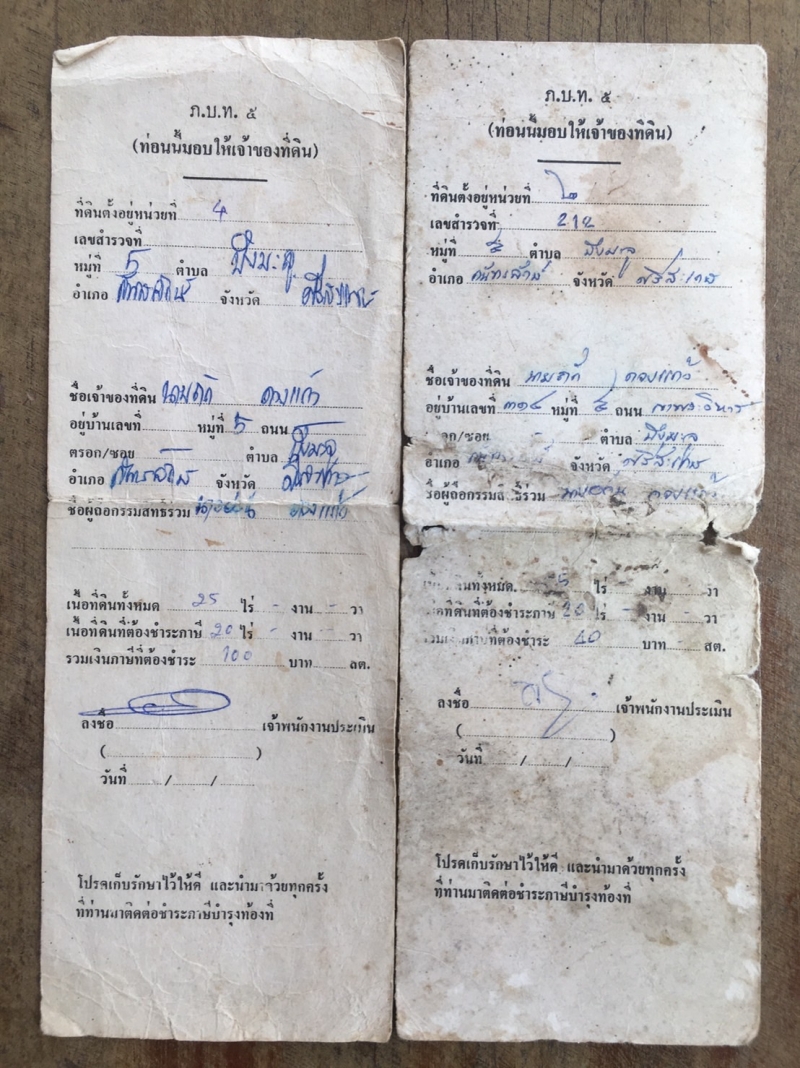 ภ.บ.ท. ๕
(ท่อนนี้มอบให้เจ้าของที่ดิน)
ที่ดินตั้งอยู่หน่วยที่ 4
เลขสำรวจที่
หมู่ที่ 5 ตำบล บึงมะลู
อำเภอ กันทรลักษ์ จังหวัด ศรีสะเกษ
ชื่อเจ้าของที่ดิน ดวงแก้ว
อยู่บ้านเลขที่ - หมู่ที่ 5 ถนน
ตรอก/ซอย - ตำบล บึงมะลู
อำเภอ กันทรลักษ์ จังหวัด ศรีสะเกษ
ชื่อผู้ถือกรรมสิทธิ์ร่วม ดวงแก้ว
เนื้อที่ดินทั้งหมด 25 ไร่ - งาน - วา
เนื้อที่ดินที่ต้องชำระภาษี 20 ไร่ - งาน - วา
รวมเงินภาษีที่ต้องชำระ 100 บาท สต.
ลงชื่อ เจ้าพนักงานประเมิน
( )
วันที่ / /
โปรดเก็บรักษาไว้ให้ดี และนำมาด้วยทุกครั้ง
ที่ท่านมาติดต่อชำระภาษีบำรุงท้องที่
ภ.บ.ท. ๕
(ท่อนนี้มอบให้เจ้าของที่ดิน)
ที่ดินตั้งอยู่หน่วยที่ ๖
เลขสำรวจที่ 212
หมู่ที่ ๕ ตำบล บึงมะลู
อำเภอ กันทรลักษ์ จังหวัด ศรีสะเกษ
ชื่อเจ้าของที่ดิน ดวงแก้ว
อยู่บ้านเลขที่ ๓๑๘ หมู่ที่ ๕ ถนน เขาพระวิหาร
ตรอก/ซอย - ตำบล บึงมะลู
อำเภอ จังหวัด ศรีสะเกษ
ชื่อผู้ถือกรรมสิทธิ์ร่วม ดวงแก้ว
เนื้อที่ดินทั้งหมด ไร่ - งาน วา
เนื้อที่ดินที่ต้องชำระภาษี 20 ไร่ - งาน - วา
รวมเงินภาษีที่ต้องชำระ 40 บาท สต.
ลงชื่อ เจ้าพนักงานประเมิน
( )
วันที่ / /
โปรดเก็บรักษาไว้ให้ดี และนำมาด้วยทุกครั้ง
ที่ท่านมาติดต่อชำระภาษีบำรุงท้องที่